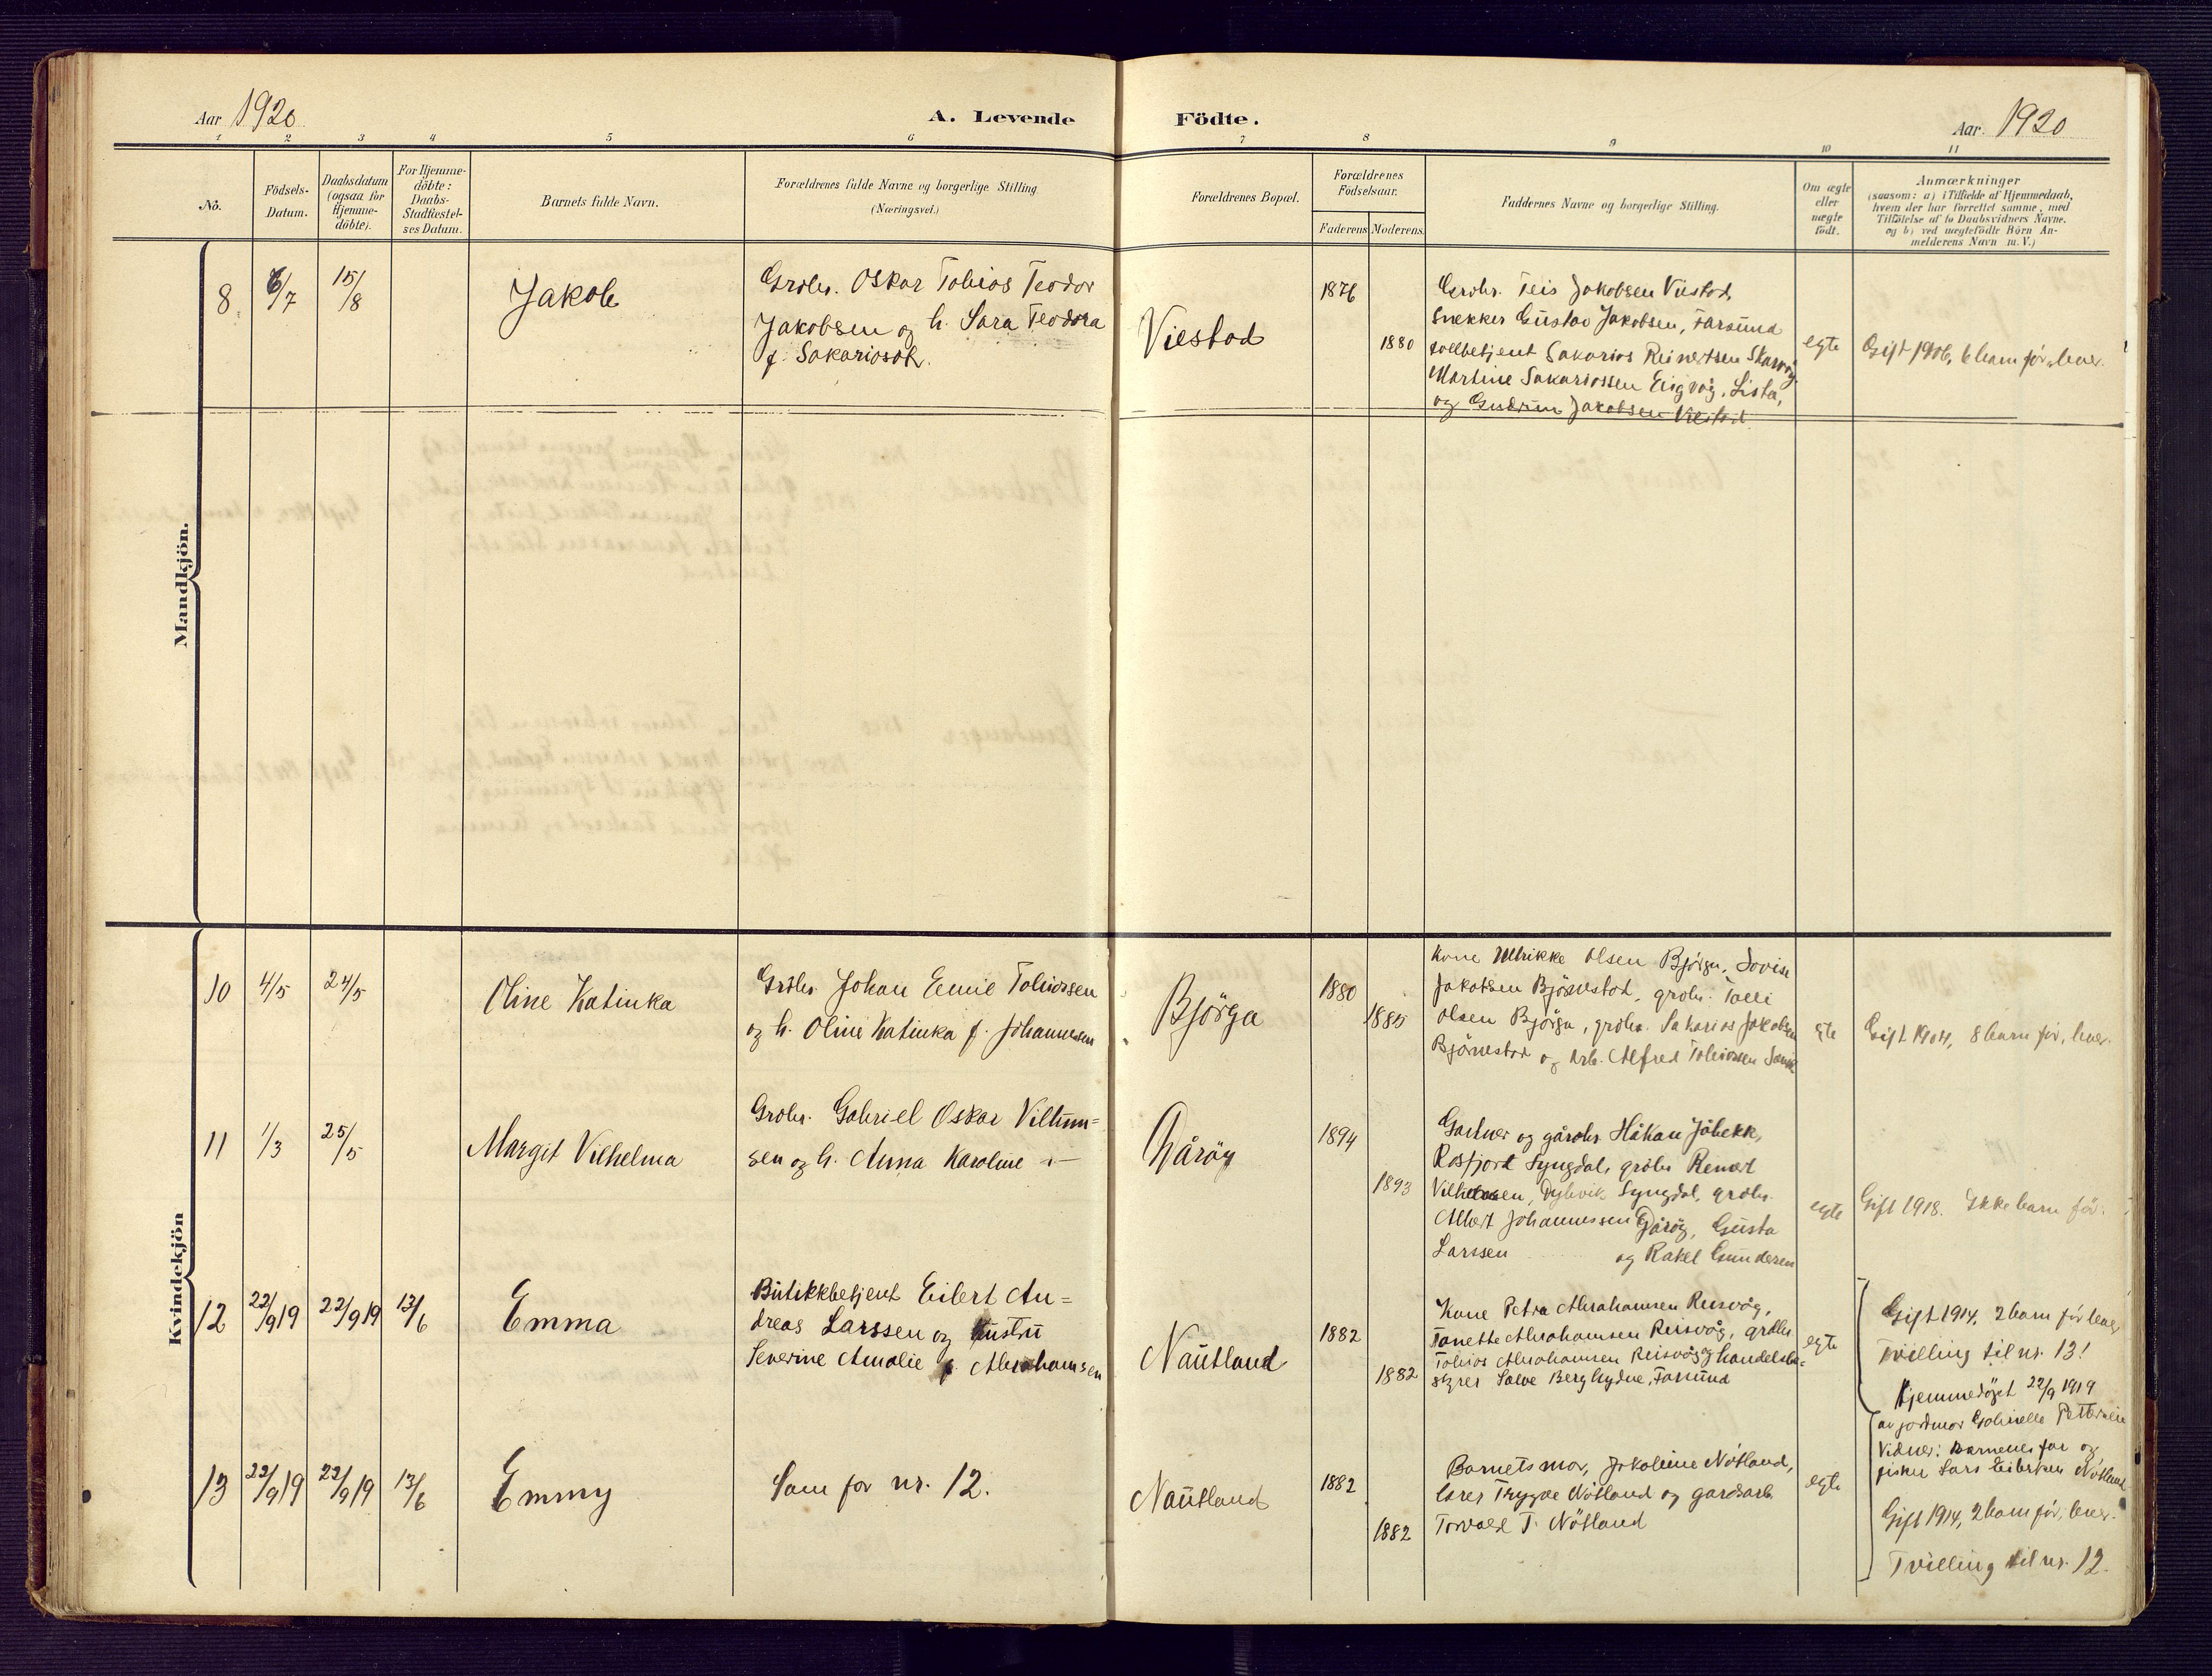 Aar 1920
A. Levende Födte.
Aar. 1920
1 2 3 4 5 6 7 8 9 10 11
No.
Födsels-
Datum.
Daabsdatum
(ogsaa for
Hjemme-
döbte).
For Hjemme-
döbte:
Daabs-
Stadfæstel-
ses Datum.
Barnets fulde Navn.
Forældrenes fulde Navne og borgerlige Stilling
(Næringsvei.)
Forældrenes Bopæl.
Forældrenes
Födselsaar.
Faderens
Moderens.
Faddernes Navne og borgerlige Stilling.
Om ægte
eller
uægte
födt.
Anmærkninger
(saasom: a) i Tilfælde af Hjemmedaab,
hvem der har forrettet samme, med
Tilföielse af to Daabsvidners Navne.
og b) ved uægtefödte Börn An-
melderens Navn m. V.)
Mandkjön.
8
6/7
15/8
Jakob
Grdbr. Oskar Tobias Teodor
Jakobsen og h. Sara Teodora
f. Sakariasdt.
Viestad
1876
1880
Grdbr. Teis Jakobsen Viestad,
Snekker Gustav Jakobsen, Farsund
tollbetjent Sakarias Reinertsen Skarvåg
Martine Sakariassen Eigvåg, Lista,
og Gudrun Jakobsen Viestad
egte
Gift 1906, 6 barn før, lever.
Kvindekjön
10
4/5
24/5
Oline Katinka
Grdbr. Johan Emil Tobiassen
og h. Oline Katinka f. Johannessen
Björga
1880
1885
Kone Ulrikke Olsen Björga, Lovise
Jakobsen Björnestad, grdbr. Tolli
Olsen Björga, grdbr. Sakarias Jakobsen
Björnestad og Arb. Alfred Tobiassen
egte
Gift 1904, 8 barn før, lever.
11
1/3
25/5
Margit Vilhelma
Grdbr. Gabriel Oskar Villum=
sen og h. Anna Karoline
Gåröy
1894
1893
Gartner og gårdbr Håkan Jåbekk,
Rosfjord Lyngdal, grdbr Reinert
Vilhelmsen, Dybvik Lyngdal, grdbr.
Albert Johannessen Gåröy, Gusta
Larssen og Rakel Gundersen
egte
Gift 1918. Ikke barn før.
12
22/9 19
22/9 19
13/6
Emma
Butikkbetjent Eilert An=
dreas Larssen og hustru
Severine Amalie f. Abrahamsen
Nautland
1882
1882
Kone Petra Abrahamsen Reisvåg,
Tanette Abrahamsen Reisvåg, grdbr
Tobias Abrahamsen Reisvåg og handelsbe=
styrer Salve Berghydne, Farsund
egte
Gift 1914, 2 barn før lever
Tvilling til nr. 13!
Hjemmedöpt 22/9 1919
av jordmor Gabrielle Pettersen
Vidner: Barnenes far og
fisker Lars Eilertsen Nötland
13
22/9 19
22/9 19
13/6
Emmy
Som for nr. 12.
Nautland
1882
1882
Barnets mor, Jakoline Nötland,
lærer Trygve Nötland og gardsarb.
Torvald T. Nötland
egte
Gift 1914, 2 barn før, lever.
Tvilling til nr. 12.